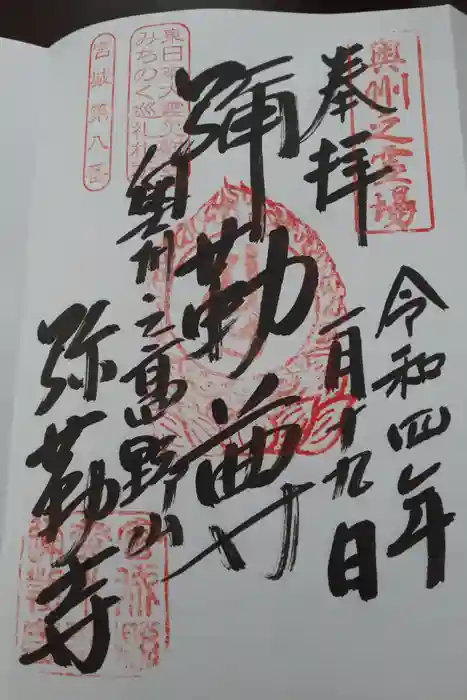 奉拝
奥州之霊場
令和四年
一月十九日
彌勒尊
奥州之高野山
弥勒寺
東日本大震災
みちのく巡礼
宮城第八